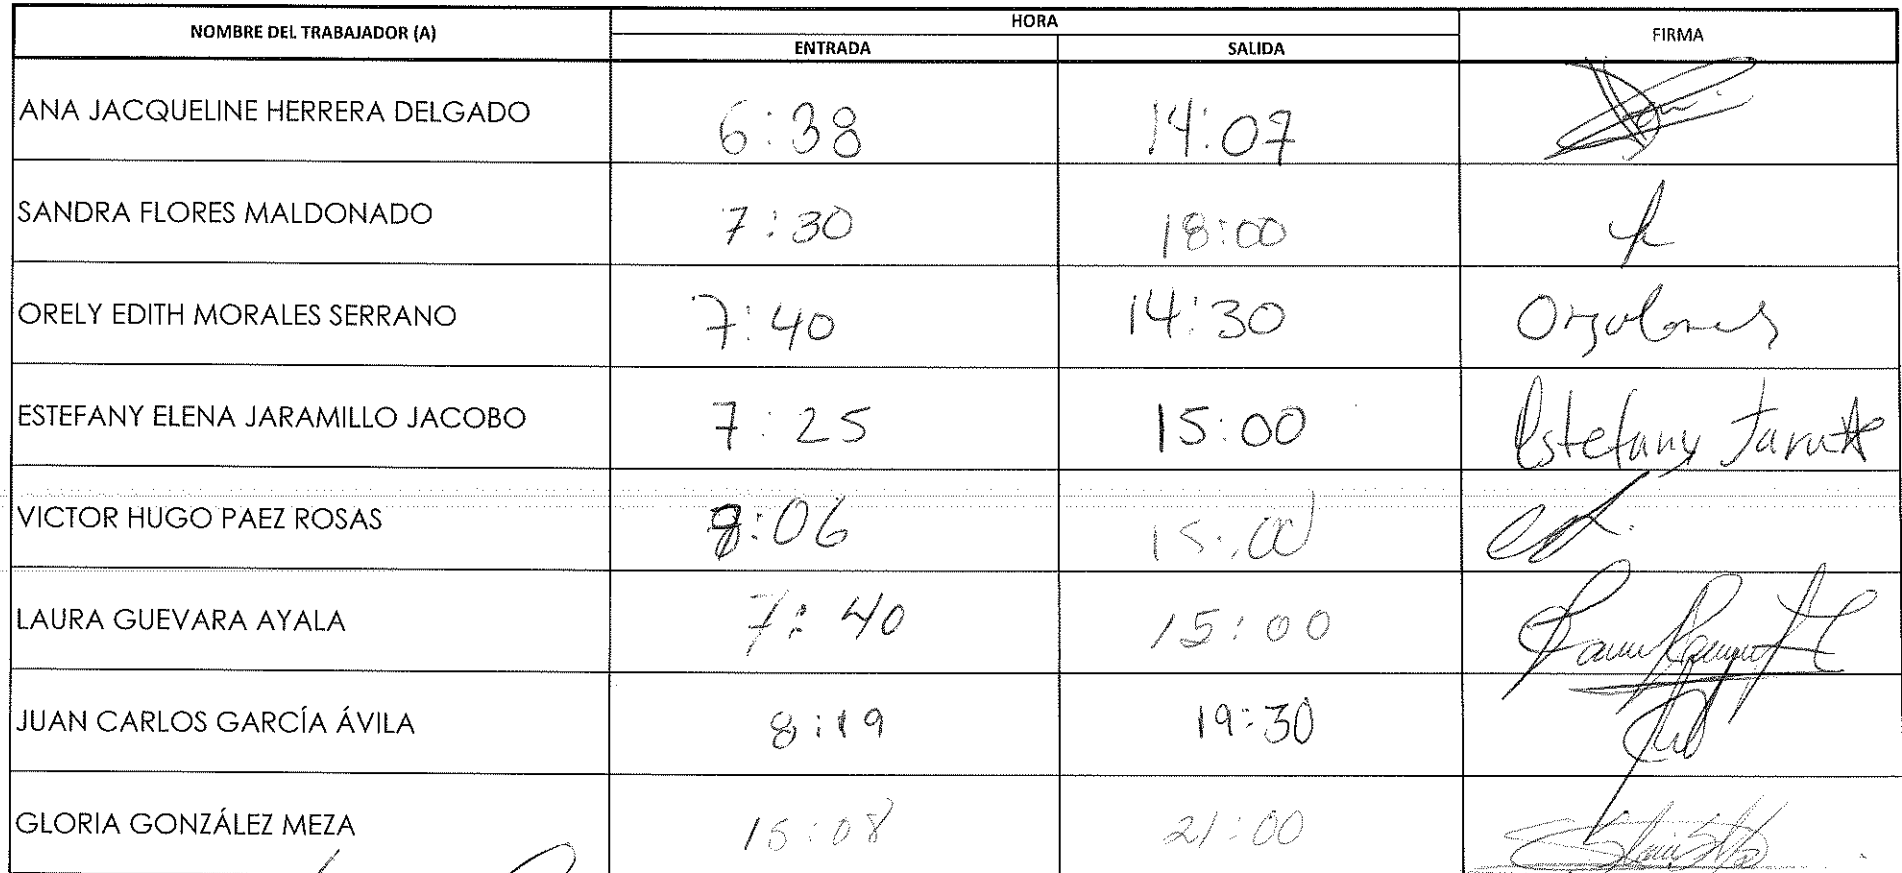 NOMBRE DEL TRABAJADOR (A) HORA FIRMA
ENTRADA SALIDA
ANA JACQUELINE HERRERA DELGADO 6:38 14:07
SANDRA FLORES MALDONADO 7:30 18:00
ORELY EDITH MORALES SERRANO 7:40 14:30
ESTEFANY ELENA JARAMILLO JACOBO 7:25 15:00 Estefany
VICTOR HUGO PAEZ ROSAS 8:06 15:00
LAURA GUEVARA AYALA 7:40 15:00
JUAN CARLOS GARCÍA ÁVILA 8:19 19:30
GLORIA GONZÁLEZ MEZA 15:08 21:00